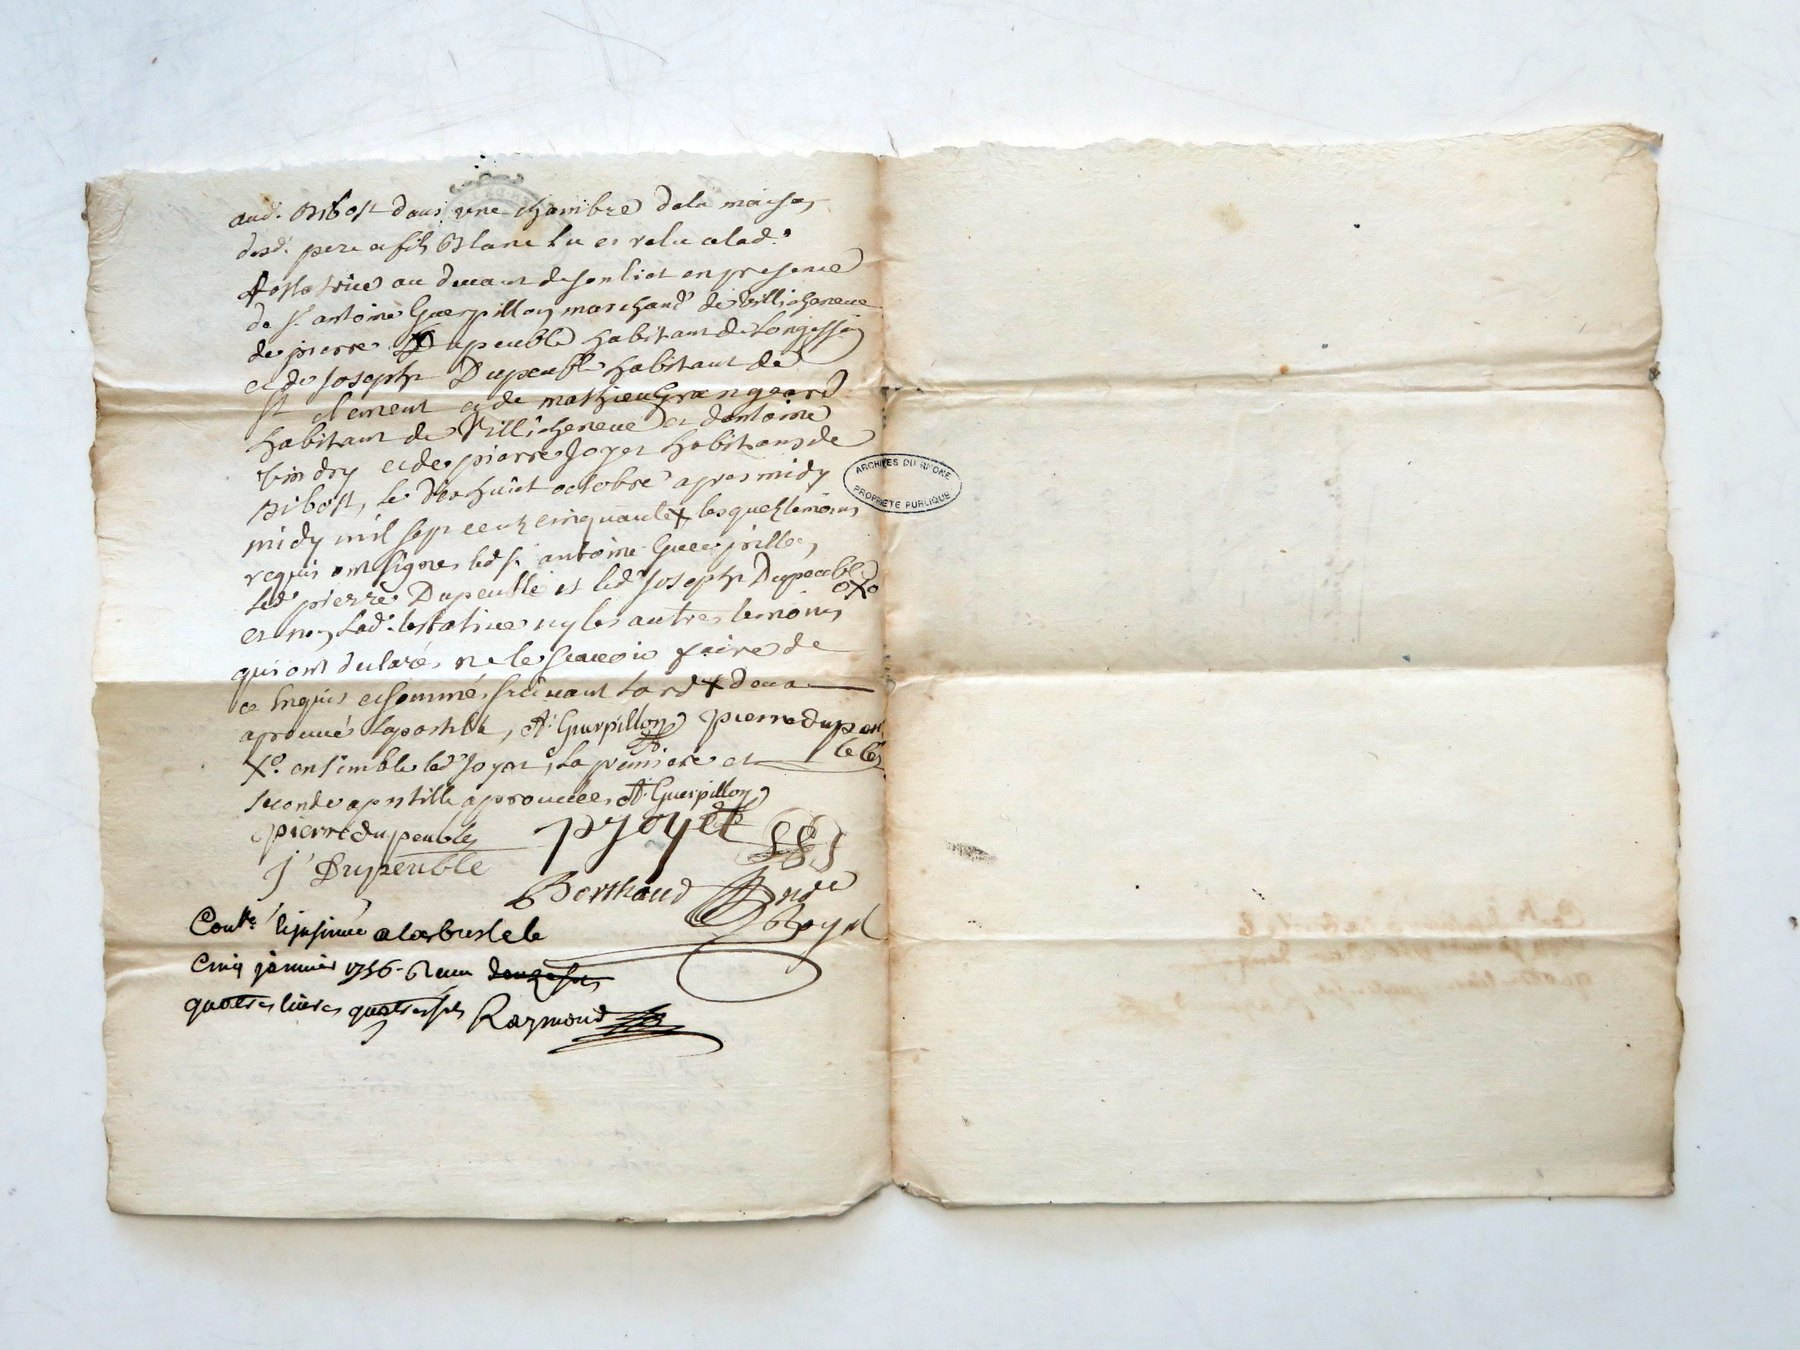 aud. Ribost dans une chambre dela maison
desd. pere et fils Blanc Lu et relu alad.e
testatrice au devant de son lict en presence
de Sr. antoine Guerpillon marchand de Villicheneue
de pierre Dupeuble habitant de Longessaig
et de Joseph Dupeuble habitant de
St clement et de mathieu Grangeard
habitant de Villicheneue et dantoine
Vindry et de pierre Joyet habitans de
Ribost, le dixhuict octobre apres midy
midy mil sept cent cinquante x lesquels temoins
requis ont signes led Sr. antoine Guerpillon,
led. pierre Dupeuble et led. Joseph Dupeuble
oxo
et non lad. testatrice ny les autres temoins
qui ont declarés ne le scauoir faire de
ce enquis et sommés suivant lord x dona
aprouués lapostille, A. Guerpillon pierre dupeu
ble
xo. ensemble led Joyet, La premiere et
seconde apostille aprouuees A. Guerpillon
pierre dupeuble
pJoyet
J Dupeuble
Berthaud
Royal
Conlle. & insinué a larbresle le
Cinq januier 1756. Receu douze sols
quatres liures quatre sols Raymond
ARCHIVES DU RHONE
PROPRIETE PUBLIQUE